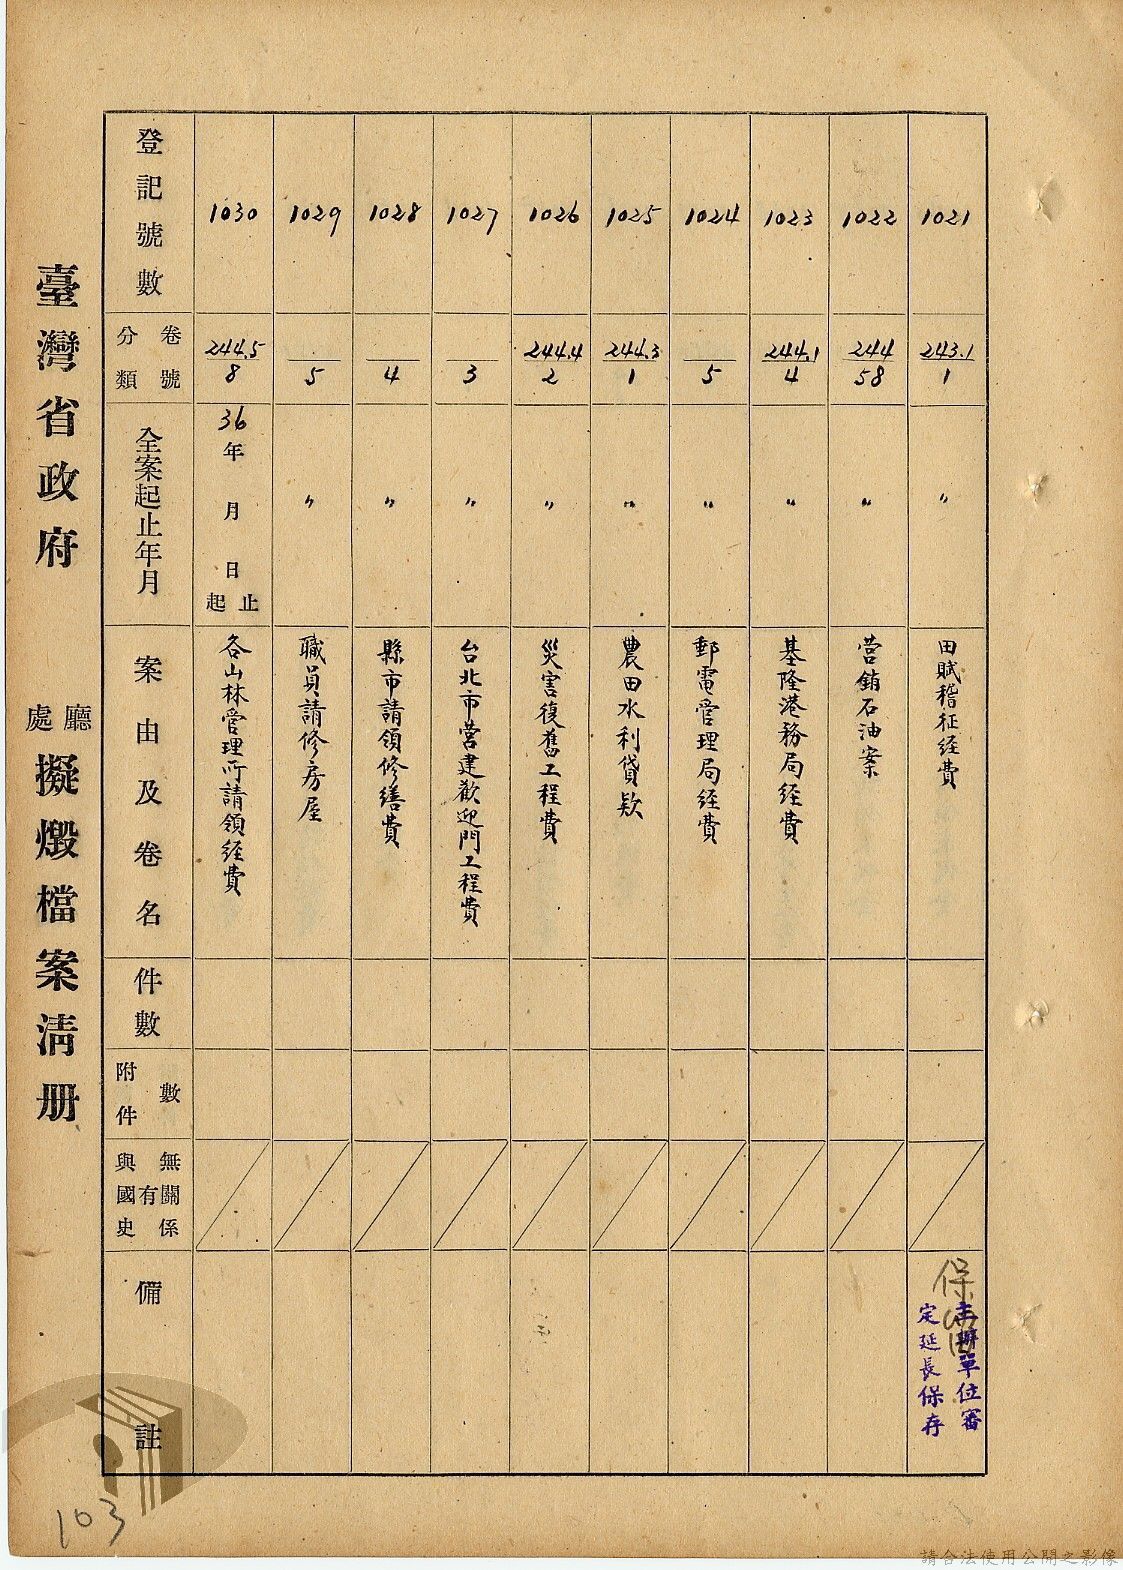 臺灣省政府 廳處 擬燬檔案清册
登記號數
1030
1029
1028
1027
1026
1025
1024
1023
1022
1021
分類 卷號
244.5 8
5
4
3
244.4 2
244.3 1
5
244.1 4
244 58
243.1 1
全案起止年月
36年 月 日 起止
〃
〃
〃
〃
〃
〃
〃
〃
〃
案由及卷名
各山林管理所請領経費
職員請修房屋
縣市請領修繕費
台北市营建歡迎門工程費
災害復舊工程費
農田水利貸款
郵電管理局経費
基隆港務局経費
营銷石油案
田賦稽征経費
件數
附件數
與國史有無關係
備註
保留
主辦單位審
定延長保存
103
請合法使用公開之影像